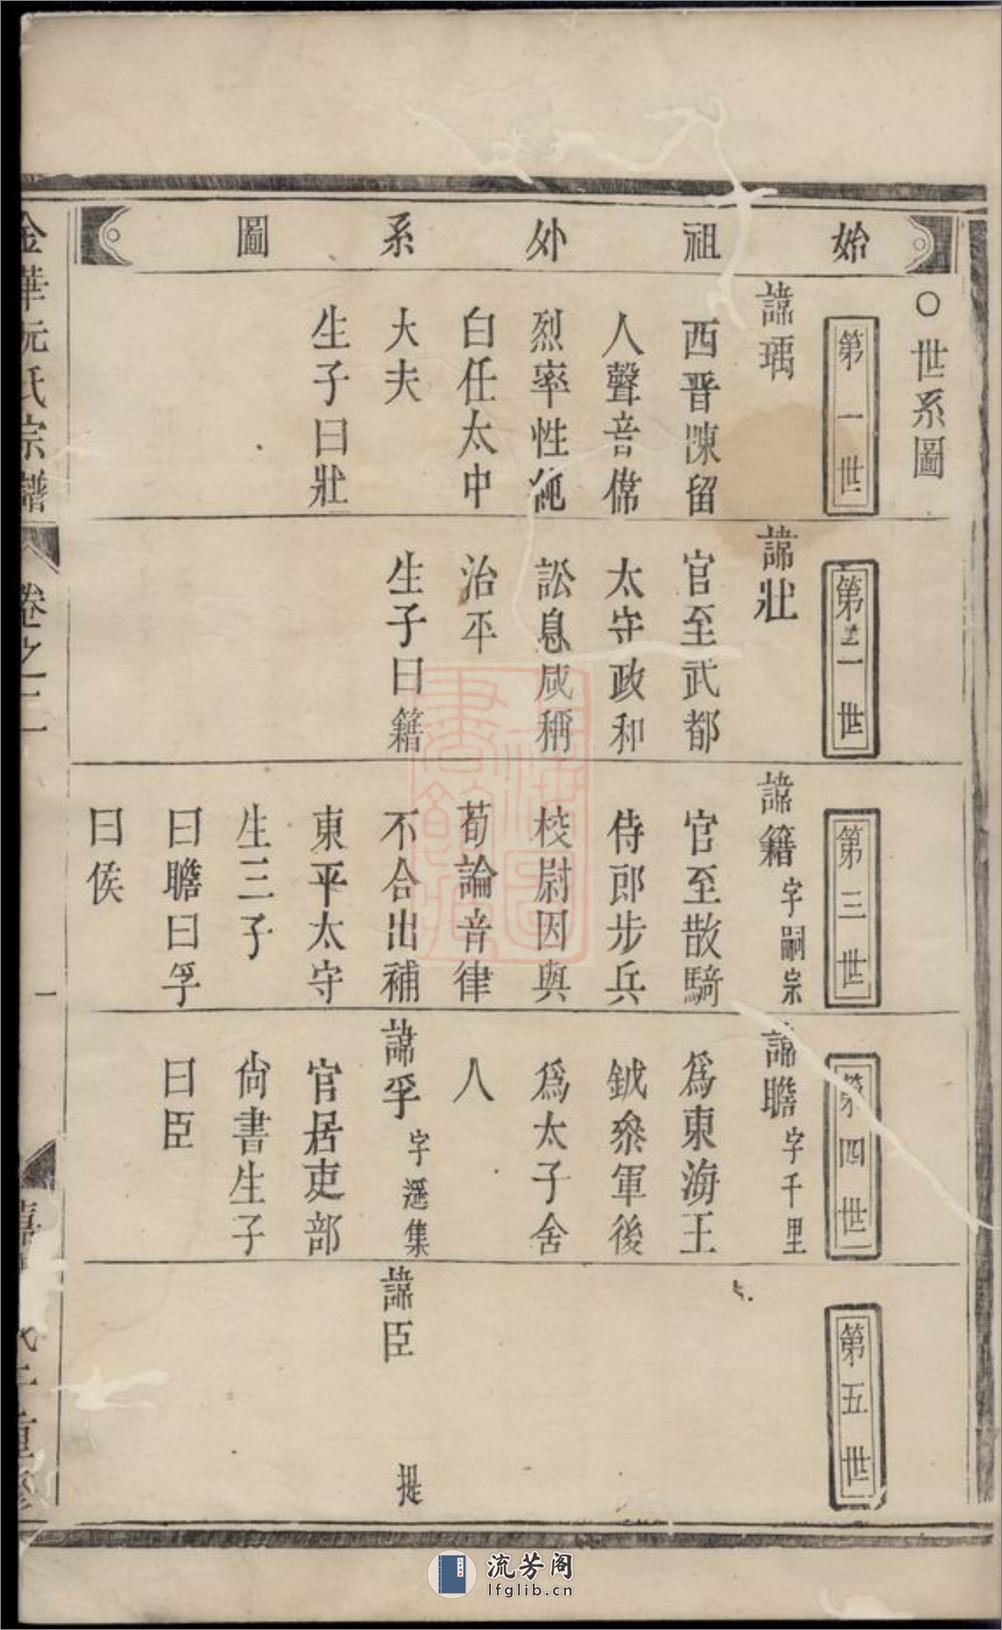 ○世系圖
始祖外系圖
第一世
諱瑀
西晋陳留
人聲音儕
烈率性純
白任太中
大夫
生子曰壯
第二世
諱壯
官至武都
太守政和
訟息咸稱
治平
生子曰籍
第三世
諱籍字嗣宗
官至散騎
侍郎步兵
校尉因與
荀論音律
不合出補
東平太守
生三子
曰瞻曰孚
曰侯
第四世
諱瞻字千里
爲東海王
鉞叅軍後
爲太子舍
人
諱孚字遥集
官居吏部
尙書生子
曰臣
第五世
諱臣
提
金華阮氏宗譜
卷之二
一
流芳阁
lfglib.cn